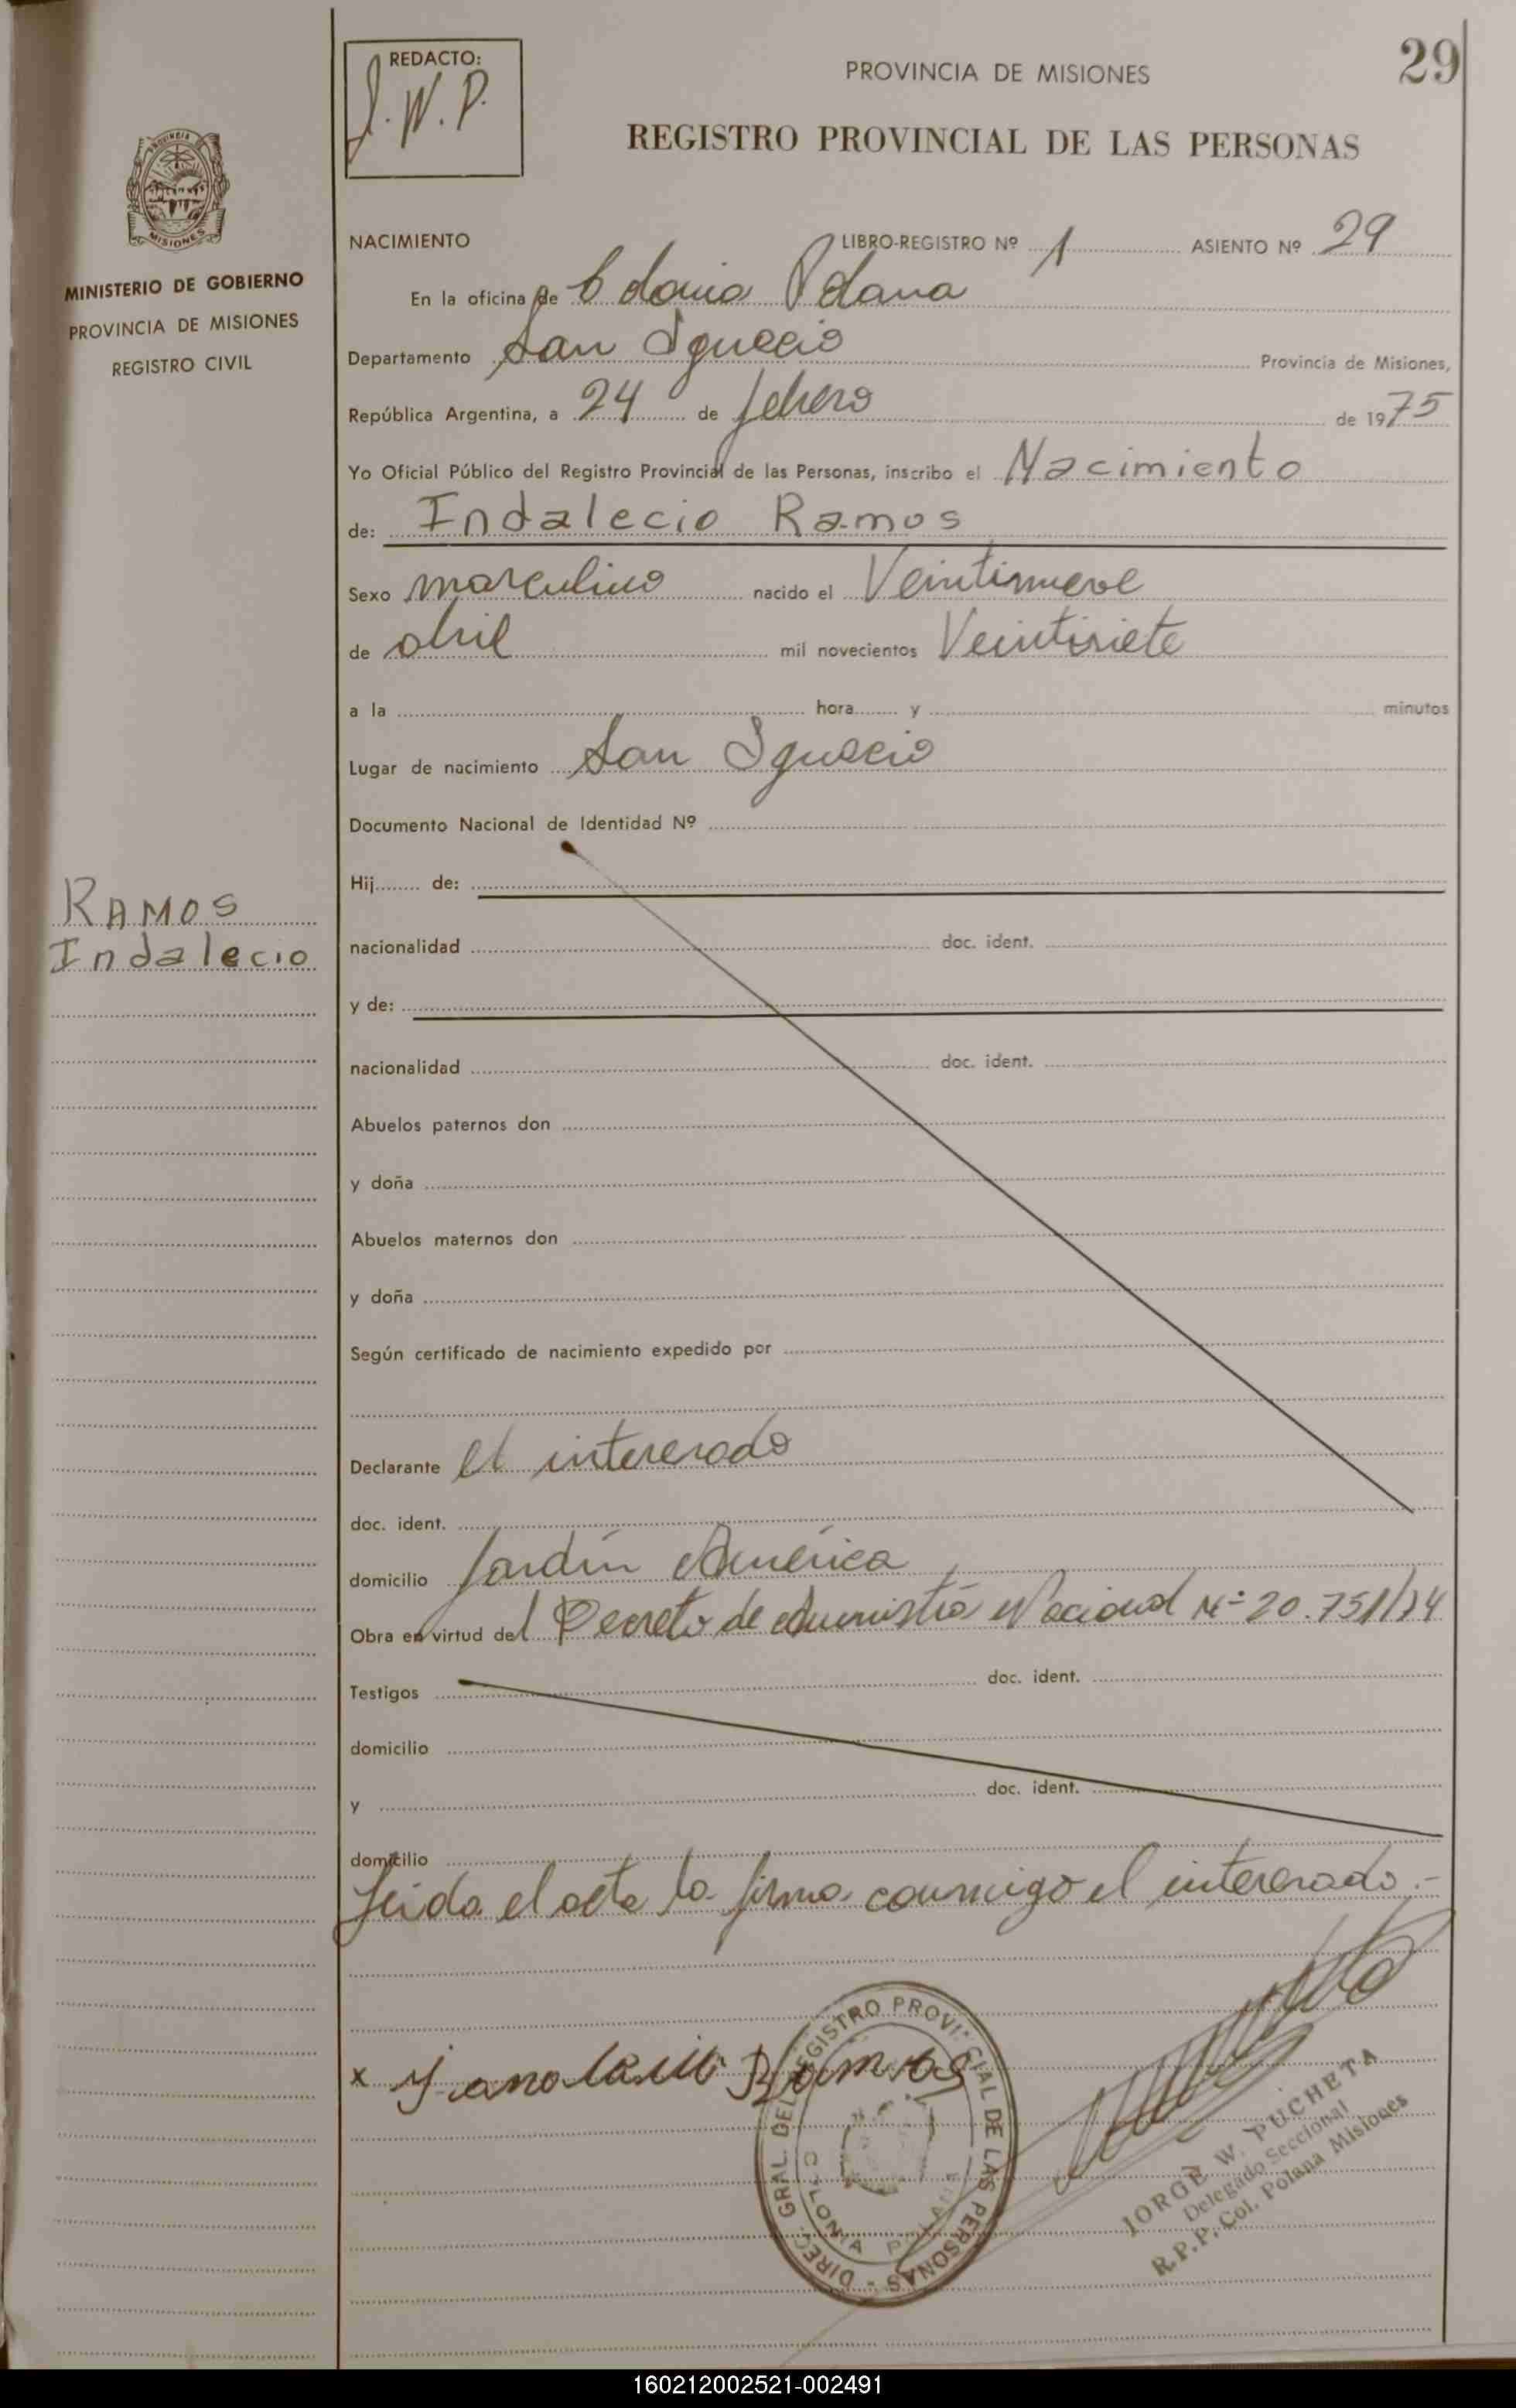 29
REDACTO:
J.W.P.
PROVINCIA DE MISIONES
REGISTRO PROVINCIAL DE LAS PERSONAS
MISIONES
MINISTERIO DE GOBIERNO
PROVINCIA DE MISIONES
REGISTRO CIVIL
NACIMIENTO LIBRO-REGISTRO Nº 1 ASIENTO Nº 29
En la oficina de Colonia Polana
Departamento San Ignacio Provincia de Misiones,
República Argentina, a 24 de febrero de 1975
Yo Oficial Público del Registro Provincial de las Personas, inscribo el Nacimiento
de: Indalecio Ramos
Sexo masculino nacido el Veintinueve
de abril mil novecientos Veintisiete
a la hora y minutos
Lugar de nacimiento San Ignacio
Documento Nacional de Identidad Nº
Hij de:
RAMOS
Indalecio
nacionalidad doc. ident.
y de:
nacionalidad doc. ident.
Abuelos paternos don
y doña
Abuelos maternos don
y doña
Según certificado de nacimiento expedido por
Declarante el interesado
doc. ident.
domicilio Jardín América
Obra en virtud del Decreto de Amnistía Nacional Nº 20.751/74
Testigos doc. ident.
domicilio
y doc. ident.
domicilio
Leida el acta la firma conmigo el interesado.-
x Ramos
DIREC. GRAL. DEL REGISTRO PROVINCIAL DE LAS PERSONAS -
COLONIA POLANA
JORGE W. PUCHETA
Delegado Seccional
R.P.P. Col. Polana Misiones
160212002521-002491